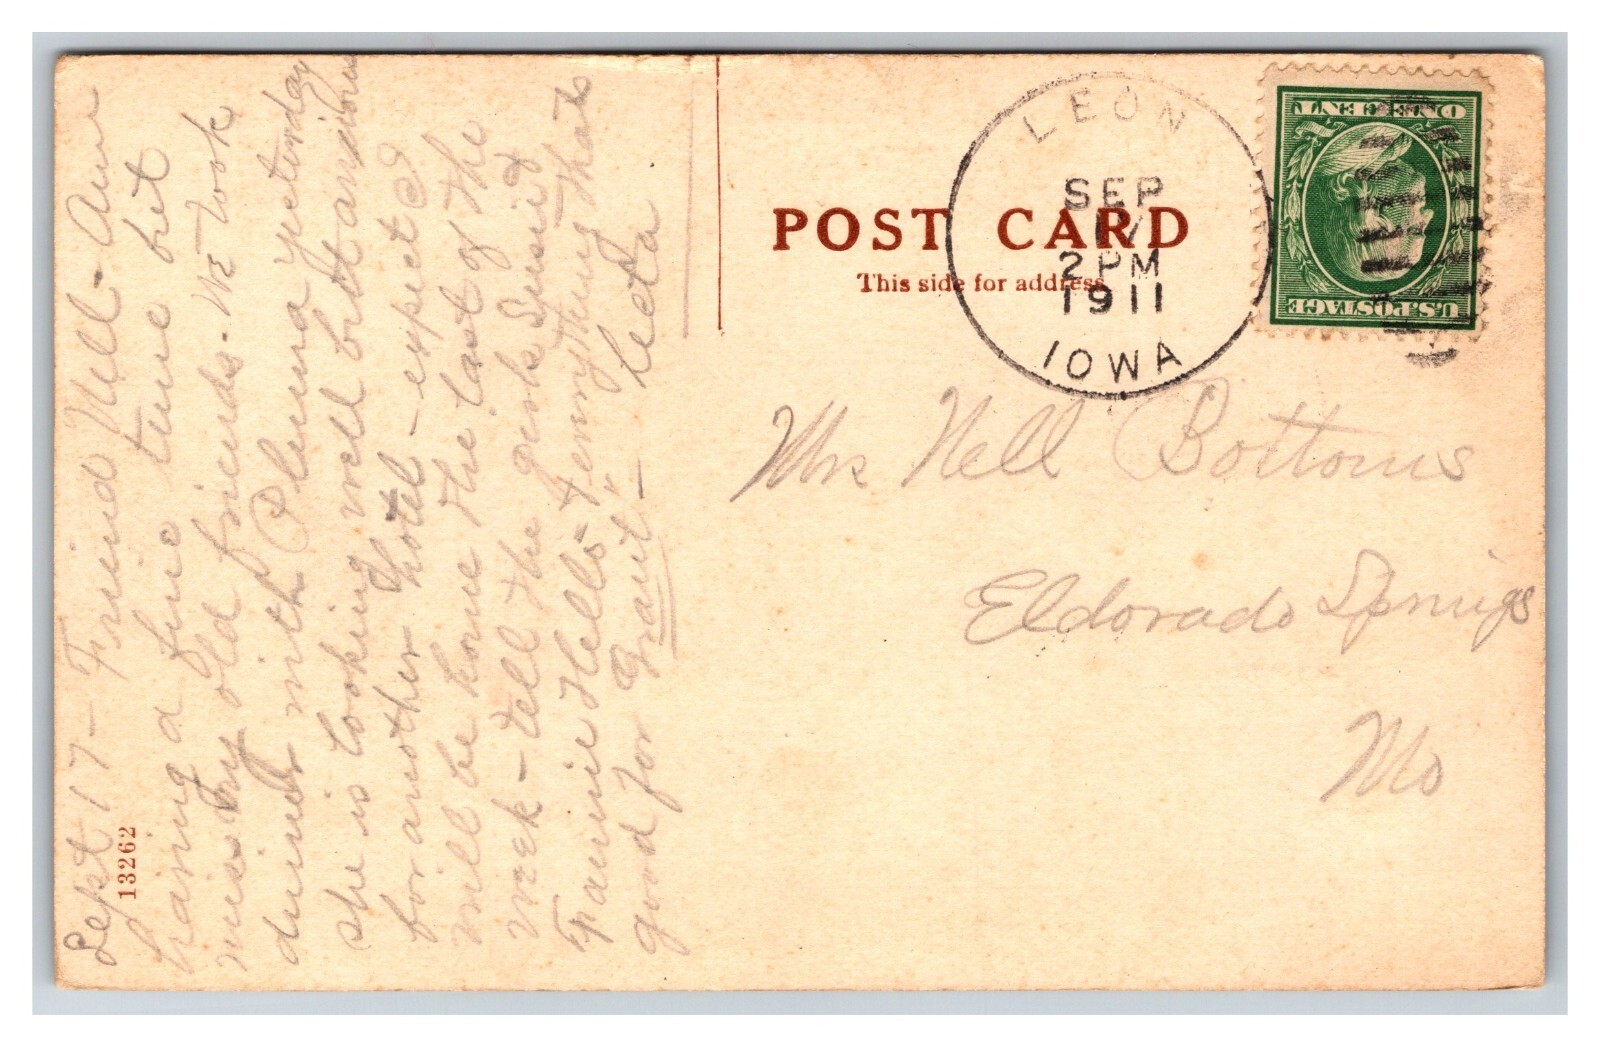 Sept 17 - Friend Nell - Am
having a fine time but
miss my old friends. We took
dinner with Plumma yesterday
she is looking well but anxious
for another hotel - expect I
will be home the last of the
week - tell the girls Susie &
Fannie Hello & everything thats
good for Grant. -
Leeta
13262
POST CARD
This side for address
LEON
SEP
2 PM
1911
IOWA
ONE CENT
U.S. POSTAGE
Mrs Nell Bottoms
Eldorado Springs
Mo